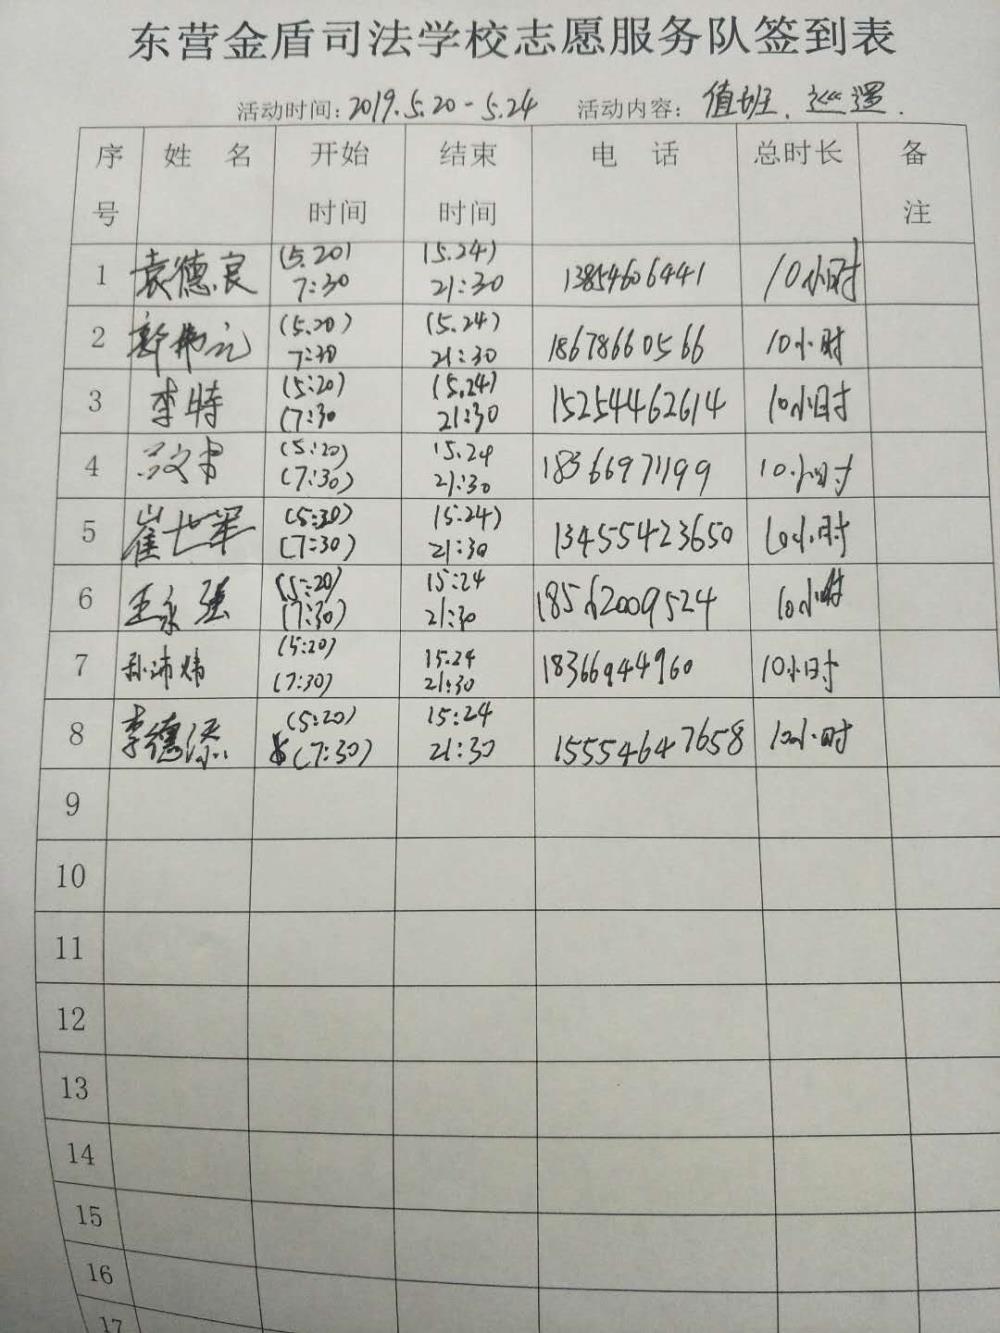 东营金盾司法学校志愿服务队签到表
活动时间:2019.5.20-5.24 活动内容: 值班、巡逻.
序号 姓 名 开始时间 结束时间 电 话 总时长 备注
1 袁德良 (5.20) 7:30 (5.24) 21:30 13854606441 10小时
2 (5.20) 7:30 (5.24) 21:30 18678660566 10小时
3 李特 (5:20) (7:30 (5.24) 21:30 15254462614 10小时
4 (5:20) (7:30) 15.24 21:30 18366971199 10小时
5 崔世军 (5:30) (7:30) (5:24) 21:30 13455423650 10小时
6 王永强 (5:20) (7:30) 15:24 21:30 18562009524 10小时
7 孙沛炜 (5:20) (7:30) 15.24 21:30 18366944960 10小时
8 李德添 (5:20) (7:30) 15:24 21:30 15554647658 10小时
9
10
11
12
13
14
15
16
17